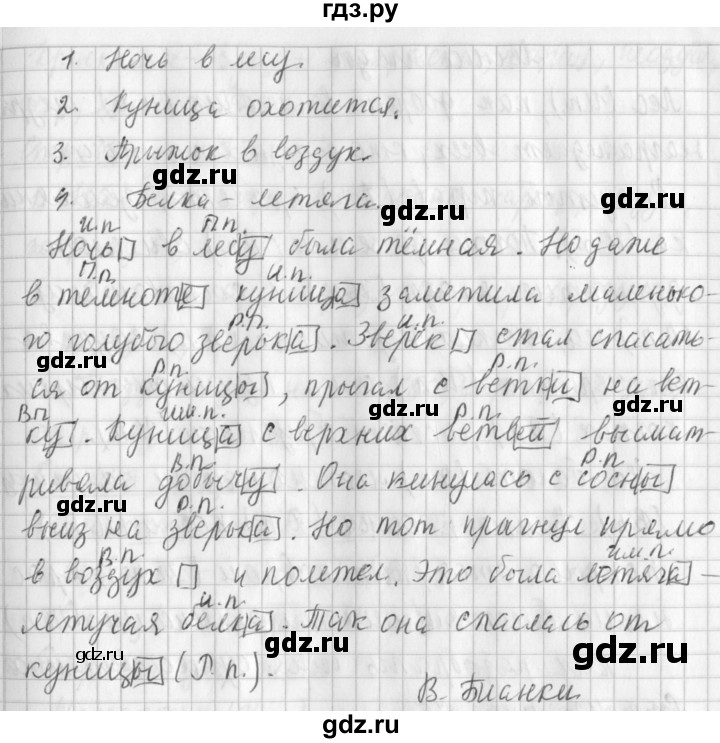 гдз.ру
1. Ночь в лесу.
2. Куница охотится.
3. Прыжок в воздух.
gdz.ru
gdz.ru
4. Белка - летяга.
И.п. П.п.
Ночь в лесу была тёмная. Но даже
П.п. И.п.
в темноте куница заметила маленько-
Р.п. И.п.
го голубого зверька. Зверек стал спасать-
gdz.ru
gdz.ru
Р.п. Р.п.
ся от куницы, прыгал с ветки на вет-
gdz.ru
gdz.ru
Вп им.п. Р.п.
ку. Куница с верхних ветвей высмат-
В.п. Р.п.
ривала добычу. Она кинулась с сосны
gdz.ru
gdz.ru
Р.п.
вниз на зверька. Но тот прягнул прямо
В.п. им.п.
в воздух и полетел. Это была летяга -
gdz.ru
gdz.ru
И.п.
летучая белка. Так она спаслась от
gdz.ru
gdz.ru
куницы (Р.п.).
В. Бианки
gdz.ru